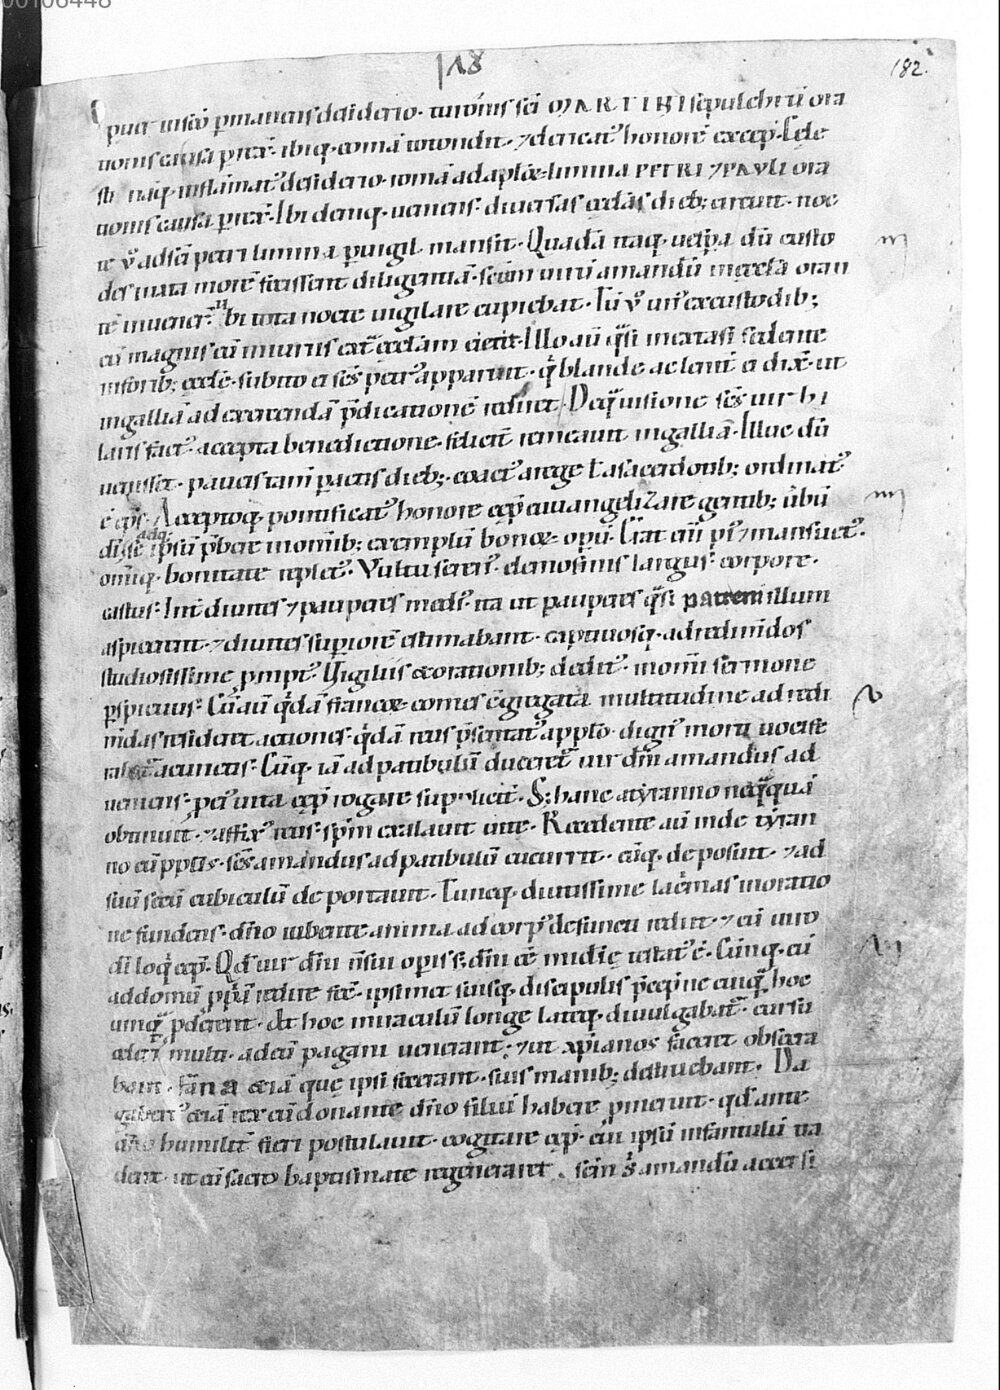 00106448
118
182.
puer in sc̄o p̄manens desiderio · turonis sc̄i MARTINI sepulchrū ora
tionis causa petit · ibiq; comā totondit · ⁊ clericat᷒ honorē excep̄ · Cęle
sti naq; inflāmat᷒ desiderio · romā ad ap̄lōꝝ limina PETRI ⁊ PAVLI ora
tionis causa petit · Ibi denq; ueniens · diuersas ęcclās dieb; circuit · noc
te ū ad sc̄i petri limina puigil mansit · Quadā itaq; uesp̄a dū custo
des iuxta morē fecissent diligentiā · sc̄m uirū amandū in ęcclā oran
tē inuener̄ · ubi tota nocte uigilare cupiebat · Tū ū un᷒ ex custodib;
cū magnis eū iniuriis ext̄ ęcclam eiecit · Illo aū q̄si in extasi sedente
in forib; ęcclę · subito ei sc̄s petr᷒ apparuit · q̄ blande ac lenit̄ ei dix̄ · ut
in galliā ad exercendā p̄dicationē rediret · De q̄ uisione sc̄s uir hi
laris fact᷒ · accepta benedictione · felicit̄ remeauit in galliā · Illuc dū
uenisset · paucis tam̄ p̄actis dieb; · coact᷒ a rege ł a sacerdotib; ordinat᷒
ē ep̄s · Acceptoq; pontificat᷒ honore cęp̄ euuangelizare gentib; ūbū
dī · se adq; ipsū p̄bere in omīb; exemplū bonoꝝ opū · Erat enī pi᷒ ⁊ mansuet᷒ ·
om̄iq; bonitate replet᷒ · Vultu seren᷒ · elemosinis largus · corpore
castus · Int̄ diuites ⁊ pauperes medi᷒ · ita ut pauperes q̄si patrem illum
aspicerent · ⁊ diuites supiorē estimabant · captiuosq; ad redimēdos
studiosissime pmpt᷒ · Uigiliis ⁊ orationib; dedit᷒ · in om̄i sermone
pspicuus · Cū aū q̄dā francoꝝ comes c̄gregata multitudine ad redi
mēdas resideret actiones · q̄dā reus p̄sentat᷒
a cunctis · Cūq; iā ad patibulū duceret᷒ uir dn̄i amandus ad
ueniens · pei᷒ uita cęp̄ rogare suppliciit̄ · S; hanc a tyranno neq̄quā
obtinuit · ⁊ affix᷒ reus · sp̄m exalauit uite · Recedente aū inde tyran
no cū pplīs · sc̄s amandus ad patibulū cucurrit · eūq; deposuit · ⁊ ad
suū secū cubiculū deportauit · Tuncq; diutissime lac̄mas in oratio
ne fundens · dn̄o iubente anima ad corp᷒ defuncti rediit · ⁊ cū uiro
dī loq̄ cęp̄ · Qd̄ uir dn̄i n̄ sui opis s; dn̄i eē mīdię testat᷒ ē · Cūnq; eū
ad domū p̄priū redire fec̄ · ipsimet suisq; discipulis p̄cęp̄ ne cuiq̄ hoc
umq̄ pderent · At hoc miraculū longe lateq; diuulgabat᷒ · cursu
celeri multi ad eū pagani uenerant · ⁊ ut xp̄ianos faceret obsecra
bant · fana etiā quę ipsi fecerant · suis manib; destruebant · Da
gobert᷒ etiā rex eū donante dn̄o filiū habere pmeruit · qd̄ ante
dn̄o humilit̄ fieri postulauit · cogitare cęp̄ · cui ipsū infantulū tra
deret · ut eū sacro baptismate regeneraret · sc̄m ḡ amandū accersi